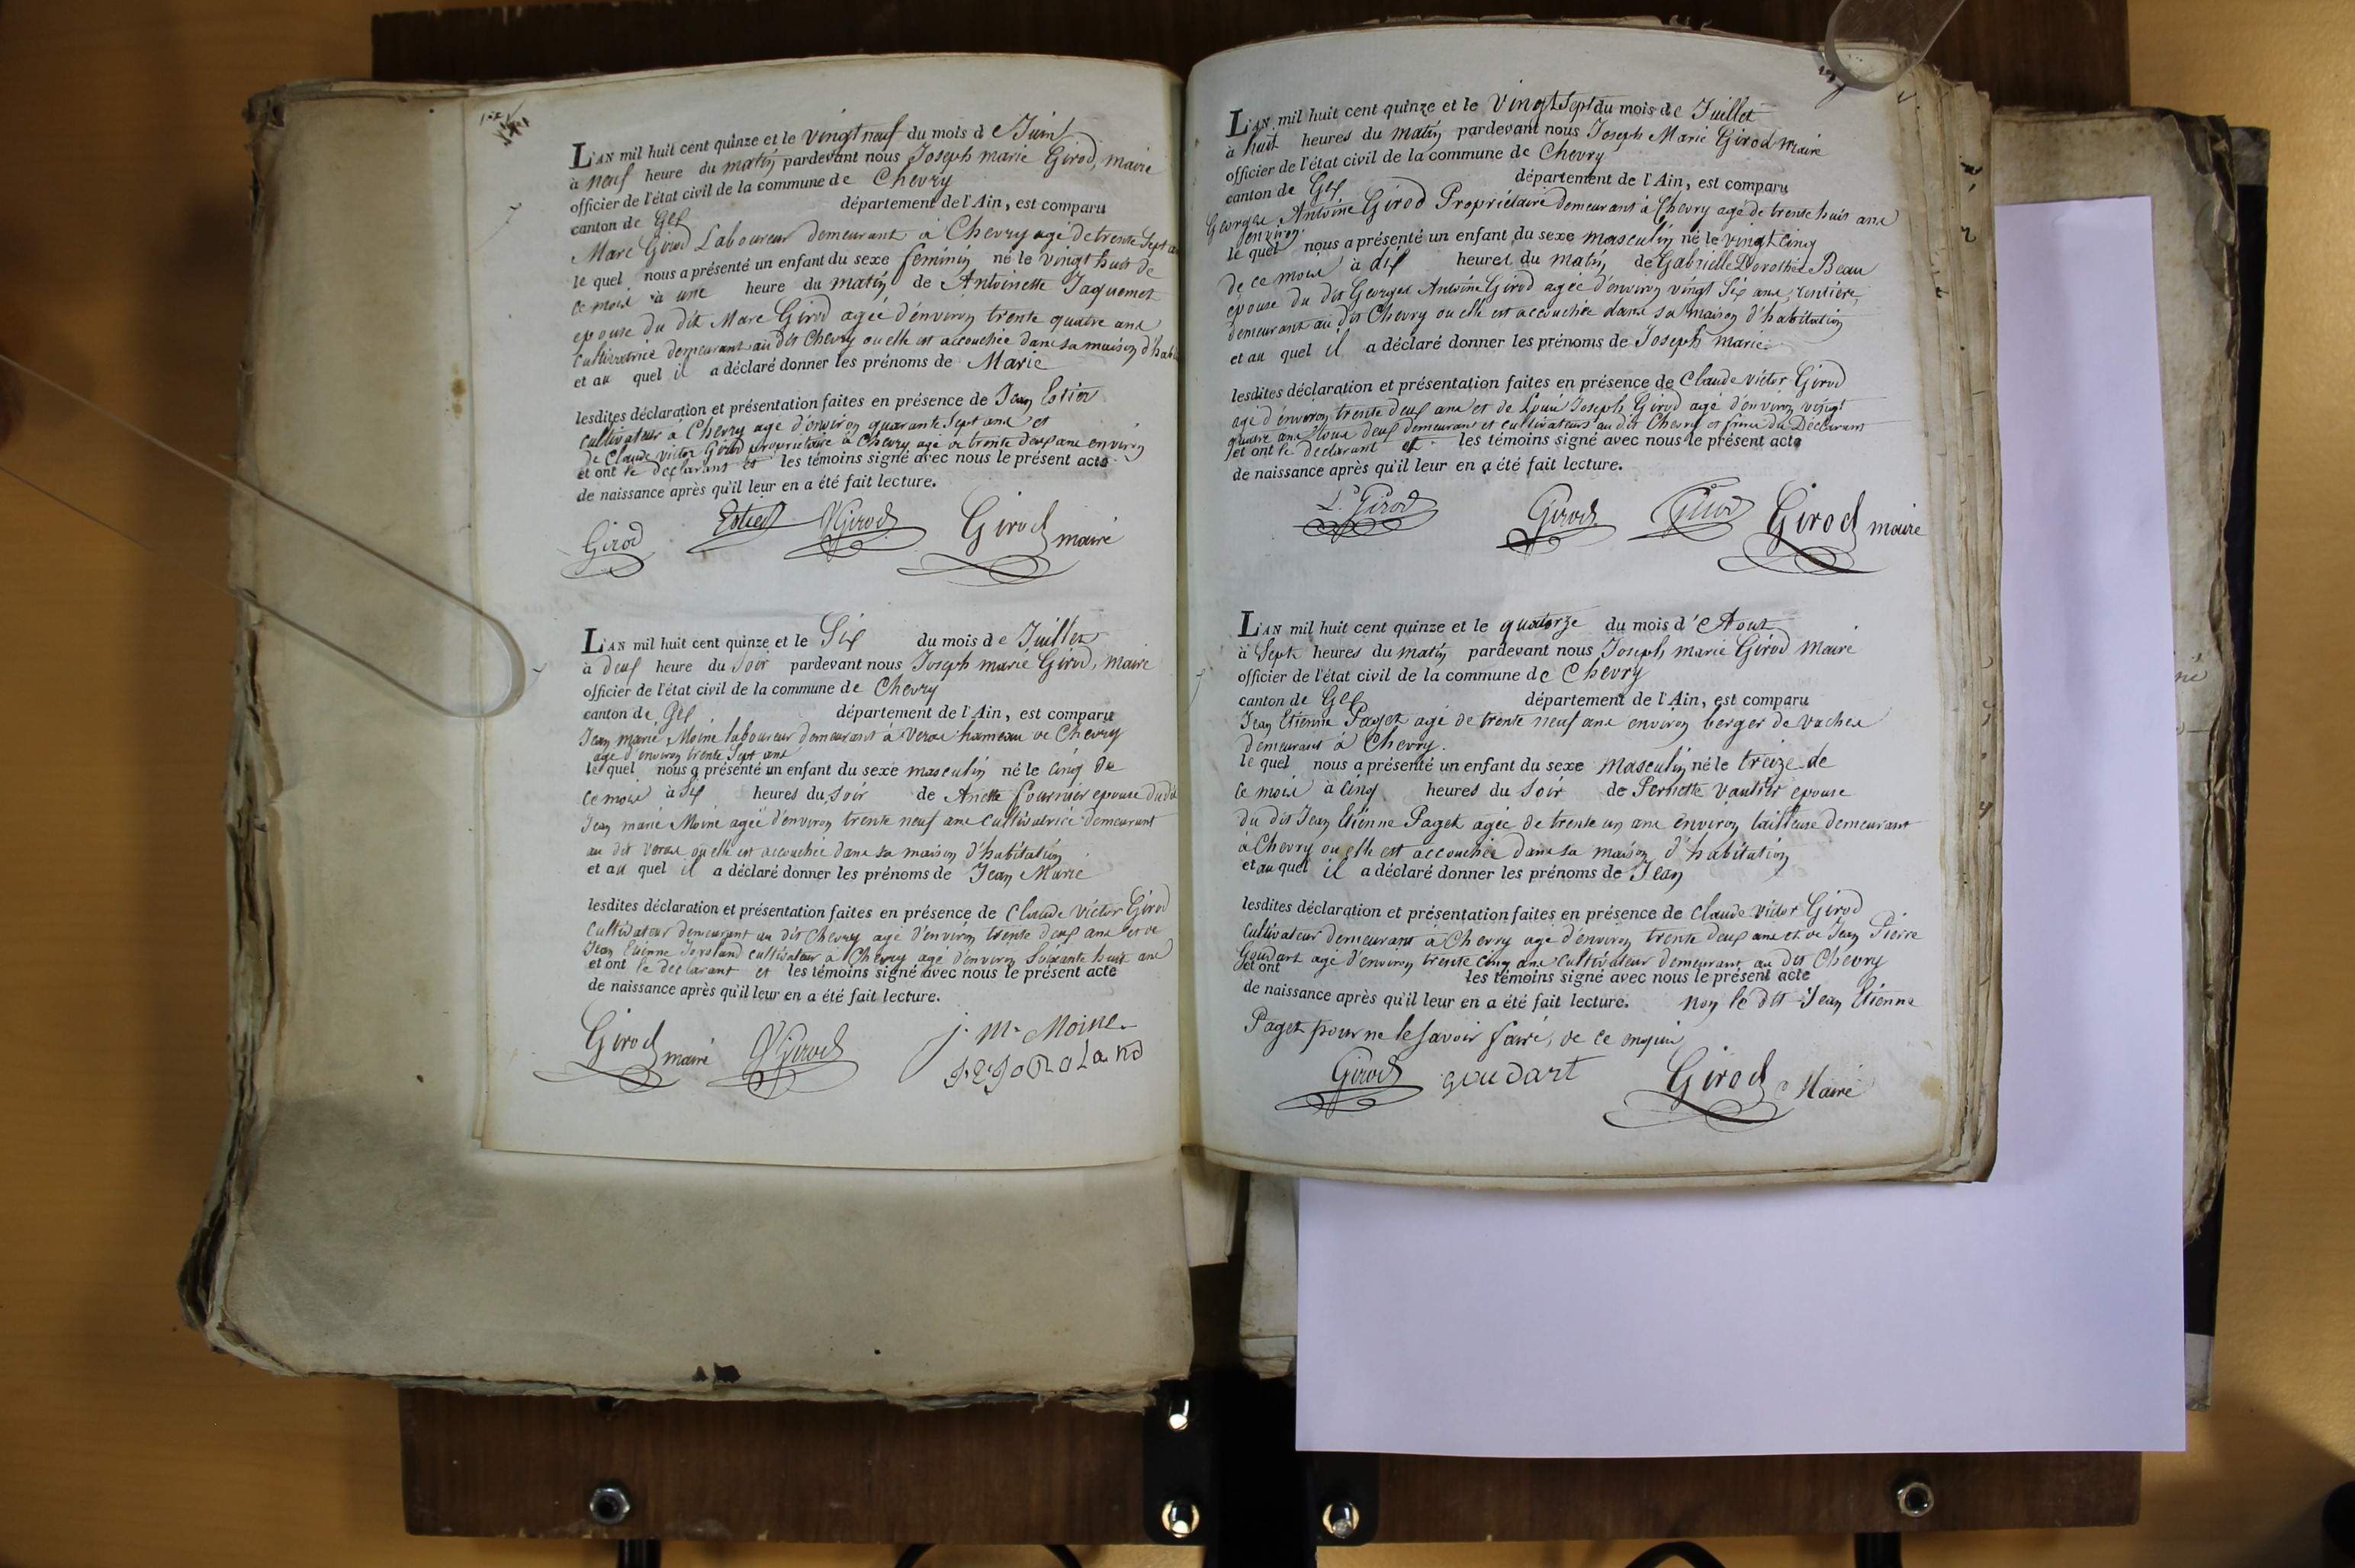 L'AN mil huit cent quinze et le vingt neuf du mois de Juin
à neuf heure du matin pardevant nous Joseph marie Girod, maire
officier de l'état civil de la commune de Chevry
canton de Gex département de l'Ain, est comparu
Marc Girod Laboureur demeurant à Chevry agé de trente Sept
le quel nous a présenté un enfant du sexe feminin né le vingt huit de
ce mois à une heure du matin de Antoinette Jaquemet
epouse du dit Marc Girod agée d'environ trente quatre ans
cultivatrice demeurant au dit Chevry ou elle est accouchée dans sa maison
et au quel il a déclaré donner les prénoms de Marie
lesdites déclaration et présentation faites en présence de Jean Estier
cultivateur à Chevry age d'environ quarante Sept ans et
de Claude victor Girod propriétaire à Chevry agé de trente deux ans environ
et ont le declarant et les témoins signé avec nous le présent acte
de naissance après qu'il leur en a été fait lecture.
Girod Estier VGirod Girod maire
L'AN mil huit cent quinze et le Six du mois de Juillet
à deux heure du Soir pardevant nous Joseph marie Girod, maire
officier de l'état civil de la commune de Chevry
canton de Gex département de l'Ain, est comparu
Jean marie Moine laboureur demeurant à Veraz hameau de Chevry
agé d'environ trente Sept ans
le quel nous a présenté un enfant du sexe masculin né le cinq de
ce mois à Six heures du Soir de Anette fournier epouse du dit
Jean marie Moine agée d'environ trente neuf ans cultivatrice demeurant
au dit Veraz ou elle est accouchée dans sa maison d'habitation
et au quel il a déclaré donner les prénoms de Jean Marie
lesdites déclaration et présentation faites en présence de Claude victor Girod
cultivateur demeurant au dit Chevry agé d'environ trente deux ans et de
Jean Etienne Joroland cultivateur à Chevry agé d'environ Soixante huit ans
et ont le declarant et les témoins signé avec nous le présent acte
de naissance après qu'il leur en a été fait lecture.
Girod maire VGirod j. m. Moine
J. E. JoRoLanD
L'AN mil huit cent quinze et le Vingt Sept du mois de Juillet
à huit heures du matin pardevant nous Joseph Marie Girod maire
officier de l'état civil de la commune de Chevry
canton de Gex département de l'Ain, est comparu
Georges Antoine Girod Propriétaire demeurant à Chevry agé de trente huit ans
environ
le quel nous a présenté un enfant du sexe masculin né le vingt cinq
de ce mois à dix heures du matin de Gabrielle Dorothée Beau
epouse du dit Georges Antoine Girod agée d'environ vingt Six ans, rentière,
demeurant au dit Chevry ou elle est accouchée dans sa maison d'habitation
et au quel il a déclaré donner les prénoms de Joseph marie
lesdites déclaration et présentation faites en présence de Claude victor Girod
agé d'environ trente deux ans et de Louis Joseph Girod agé d'environ vingt
quatre ans tous deux demeurant et cultivateurs au dit Chevry et frères du Declarant
et ont le declarant et les témoins signé avec nous le présent acte
de naissance après qu'il leur en a été fait lecture.
Girod Girod Girod Girod maire
L'AN mil huit cent quinze et le quatorze du mois d'Aout
à Sept heures du matin pardevant nous Joseph marie Girod maire
officier de l'état civil de la commune de Chevry
canton de Gex département de l'Ain, est comparu
Jean Etienne Paget agé de trente neuf ans environ berger de vaches
demeurant à Chevry.
le quel nous a présenté un enfant du sexe masculin né le treize de
ce mois à cinq heures du Soir de Pernette vautier epouse
du dit Jean Etienne Paget agée de trente un ans environ tailleuse demeurant
à Chevry ou elle est accouchée dans sa maison d'habitation
et au quel il a déclaré donner les prénoms de Jean
lesdites déclaration et présentation faites en présence de Claude victor Girod
cultivateur demeurant à Chevry agé d'environ trente deux ans et de Jean Pierre
Goudart agé d'environ trente cinq ans cultivateur demeurant au dit Chevry
et ont les témoins signé avec nous le présent acte
de naissance après qu'il leur en a été fait lecture. non le dit Jean Etienne
Paget pour ne le savoir faire, de ce requis
Girod goudart Girod Maire